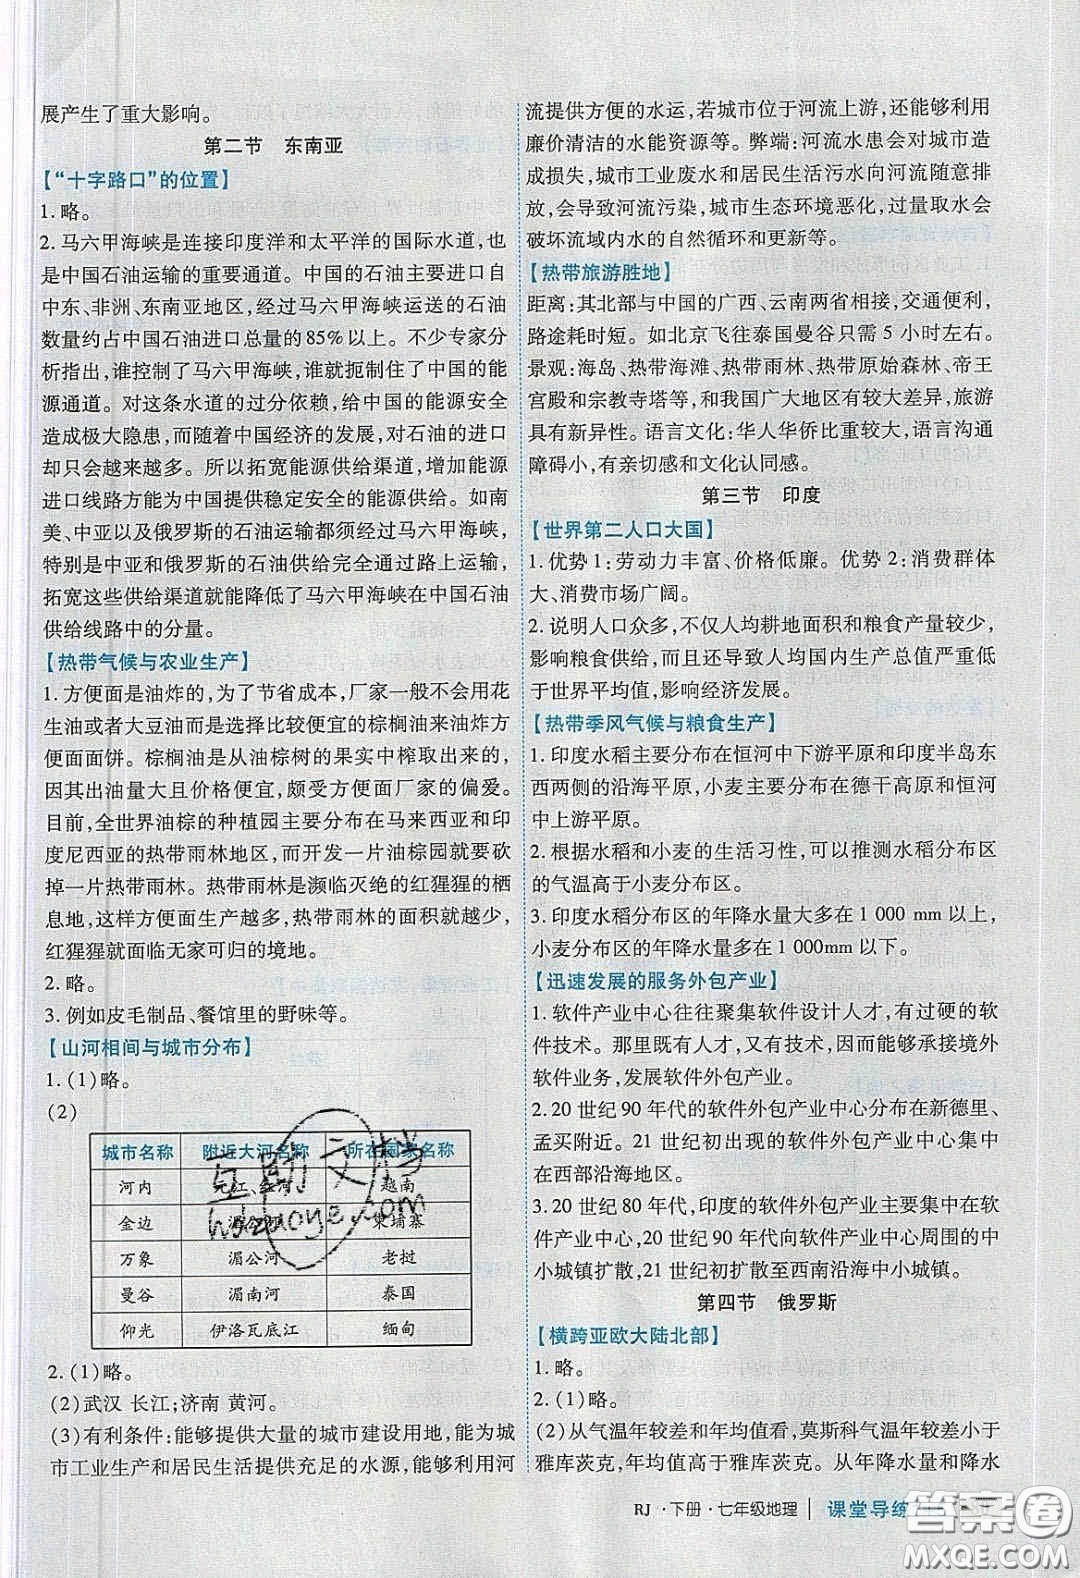 展产生了重大影响。
第二节 东南亚
【“十字路口”的位置】
1. 略。
2. 马六甲海峡是连接印度洋和太平洋的国际水道,也
是中国石油运输的重要通道。中国的石油主要进口自
中东、非洲、东南亚地区,经过马六甲海峡运送的石油
数量约占中国石油进口总量的85%以上。不少专家分
析指出,谁控制了马六甲海峡,谁就扼制住了中国的能
源通道。对这条水道的过分依赖,给中国的能源安全
造成极大隐患,而随着中国经济的发展,对石油的进口
却只会越来越多。所以拓宽能源供给渠道,增辟能源
进口线路方能为中国提供稳定安全的能源供给。如南
美、中亚以及俄罗斯的石油运输都须经过马六甲海峡,
特别是中亚和俄罗斯的石油供给完全通过路上运输,
拓宽这些供给渠道就能降低了马六甲海峡在中国石油
供给线路中的分量。
【热带气候与农业生产】
1. 方便面是油炸的,为了节省成本,厂家一般不会用花
生油或者大豆油而是选择比较便宜的棕榈油来油炸方
便面面饼。棕榈油是从油棕树的果实中榨取出来的,
因其出油量大且价格便宜,颇受方便面厂家的偏爱。
目前,全世界油棕的种植园主要分布在马来西亚和印
度尼西亚的热带雨林地区,而开发一片油棕园就要砍
掉一片热带雨林。热带雨林是濒临灭绝的红猩猩的栖
息地,这样方便面生产越多,热带雨林的面积就越少,
红猩猩就面临无家可归的境地。
2. 略。
3. 例如皮毛制品、餐馆里的野味等。
【山河相间与城市分布】
1. (1)略。
(2)
城市名称 附近大河名称 所在国家名称
河内 元江 红河 越南
金边 湄公河 柬埔寨
万象 湄公河 老挝
曼谷 湄南河 泰国
仰光 伊洛瓦底江 缅甸
2. (1)略。
(2)武汉 长江;济南 黄河。
(3)有利条件:能够提供大量的城市建设用地,能为城
市工业生产和居民生活提供充足的水源,能够利用河
流提供方便的水运,若城市位于河流上游,还能够利用
廉价清洁的水能资源等。弊端:河流水患会对城市造
成损失,城市工业废水和居民生活污水向河流随意排
放,会导致河流污染,城市生态环境恶化,过量取水会
破坏流域内水的自然循环和更新等。
【热带旅游胜地】
距离:其北部与中国的广西、云南两省相接,交通便利,
路途耗时短。如北京飞往泰国曼谷只需5小时左右。
景观:海岛、热带海滩、热带雨林、热带原始森林、帝王
宫殿和宗教寺塔等,和我国广大地区有较大差异,旅游
具有新异性。语言文化:华人华侨比重较大,语言沟通
障碍小,有亲切感和文化认同感。
第三节 印度
【世界第二人口大国】
1. 优势1:劳动力丰富、价格低廉。优势2:消费群体
大、消费市场广阔。
2. 说明人口众多,不仅人均耕地面积和粮食产量较少,
影响粮食供给,而且还导致人均国内生产总值严重低
于世界平均值,影响经济发展。
【热带季风气候与粮食生产】
1. 印度水稻主要分布在恒河中下游平原和印度半岛东
西两侧的沿海平原,小麦主要分布在德干高原和恒河
中上游平原。
2. 根据水稻和小麦的生活习性,可以推测水稻分布区
的气温高于小麦分布区。
3. 印度水稻分布区的年降水量大多在1 000 mm以上,
小麦分布区的年降水量多在1 000mm以下。
【迅速发展的服务外包产业】
1. 软件产业中心往往聚集软件设计人才,有过硬的软
件技术。那里既有人才,又有技术,因而能够承接境外
软件业务,发展软件外包产业。
2. 20世纪90年代的软件外包产业中心分布在新德里、
孟买附近。21世纪初出现的软件外包产业中心集中
在西部沿海地区。
3. 20世纪80年代,印度的软件外包产业主要集中在软
件产业中心,20世纪90年代向软件产业中心周围的中
小城镇扩散,21世纪初扩散至西南沿海中小城镇。
第四节 俄罗斯
【横跨亚欧大陆北部】
1. 略。
2. (1)略。
(2)从气温年较差和年均值看,莫斯科气温年较差小于
雅库茨克,年均值高于雅库茨克。从年降水量和降水
RJ·下册·七年级地理 课堂导练
互助文档
hdzuoye.com
答案圈
MXQE.COM